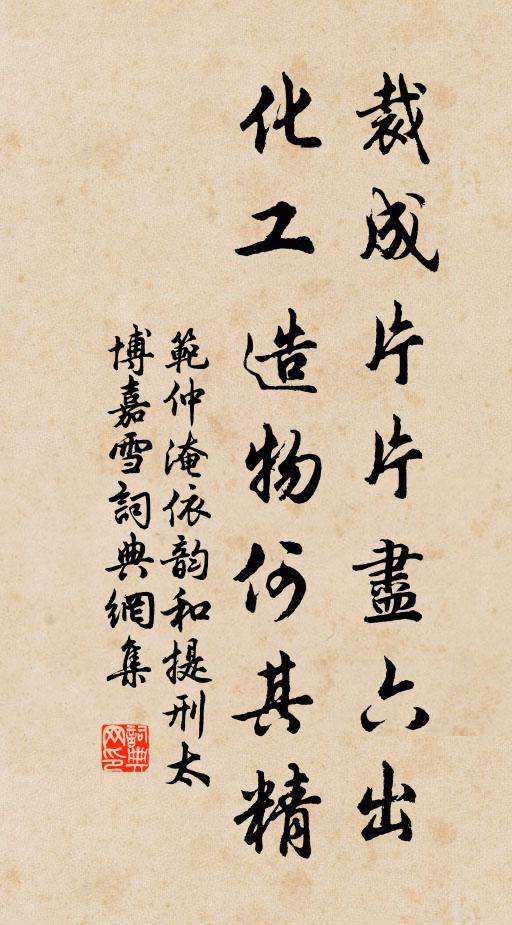 裁成片片盡六出
化工造物何其精
範仲淹依韵和提刑太
博嘉雪詞典網集
詞典网印